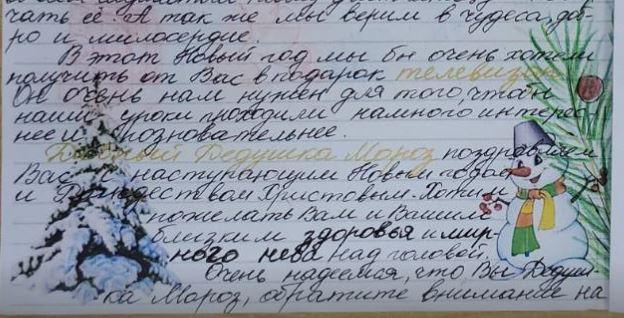 чать её. А так же мы верим в чудеса, доб-
ро и милосердие.
В этот Новый год мы бы очень хотели
получить от Вас в подарок телевизор.
Он очень нам нужен для того, чтобы
наши уроки проходили намного интерес-
нее и позновательнее.
Добрый Дедушка Мороз поздравляем
Вас с наступающим Новым годом
и Рождеством Христовым. Хотим
пожелать Вам и Вашим
близким здоровья и мир-
ного неба над головой.
Очень надеемся, что Вы Дедуш-
ка Мороз, обратите внимание на